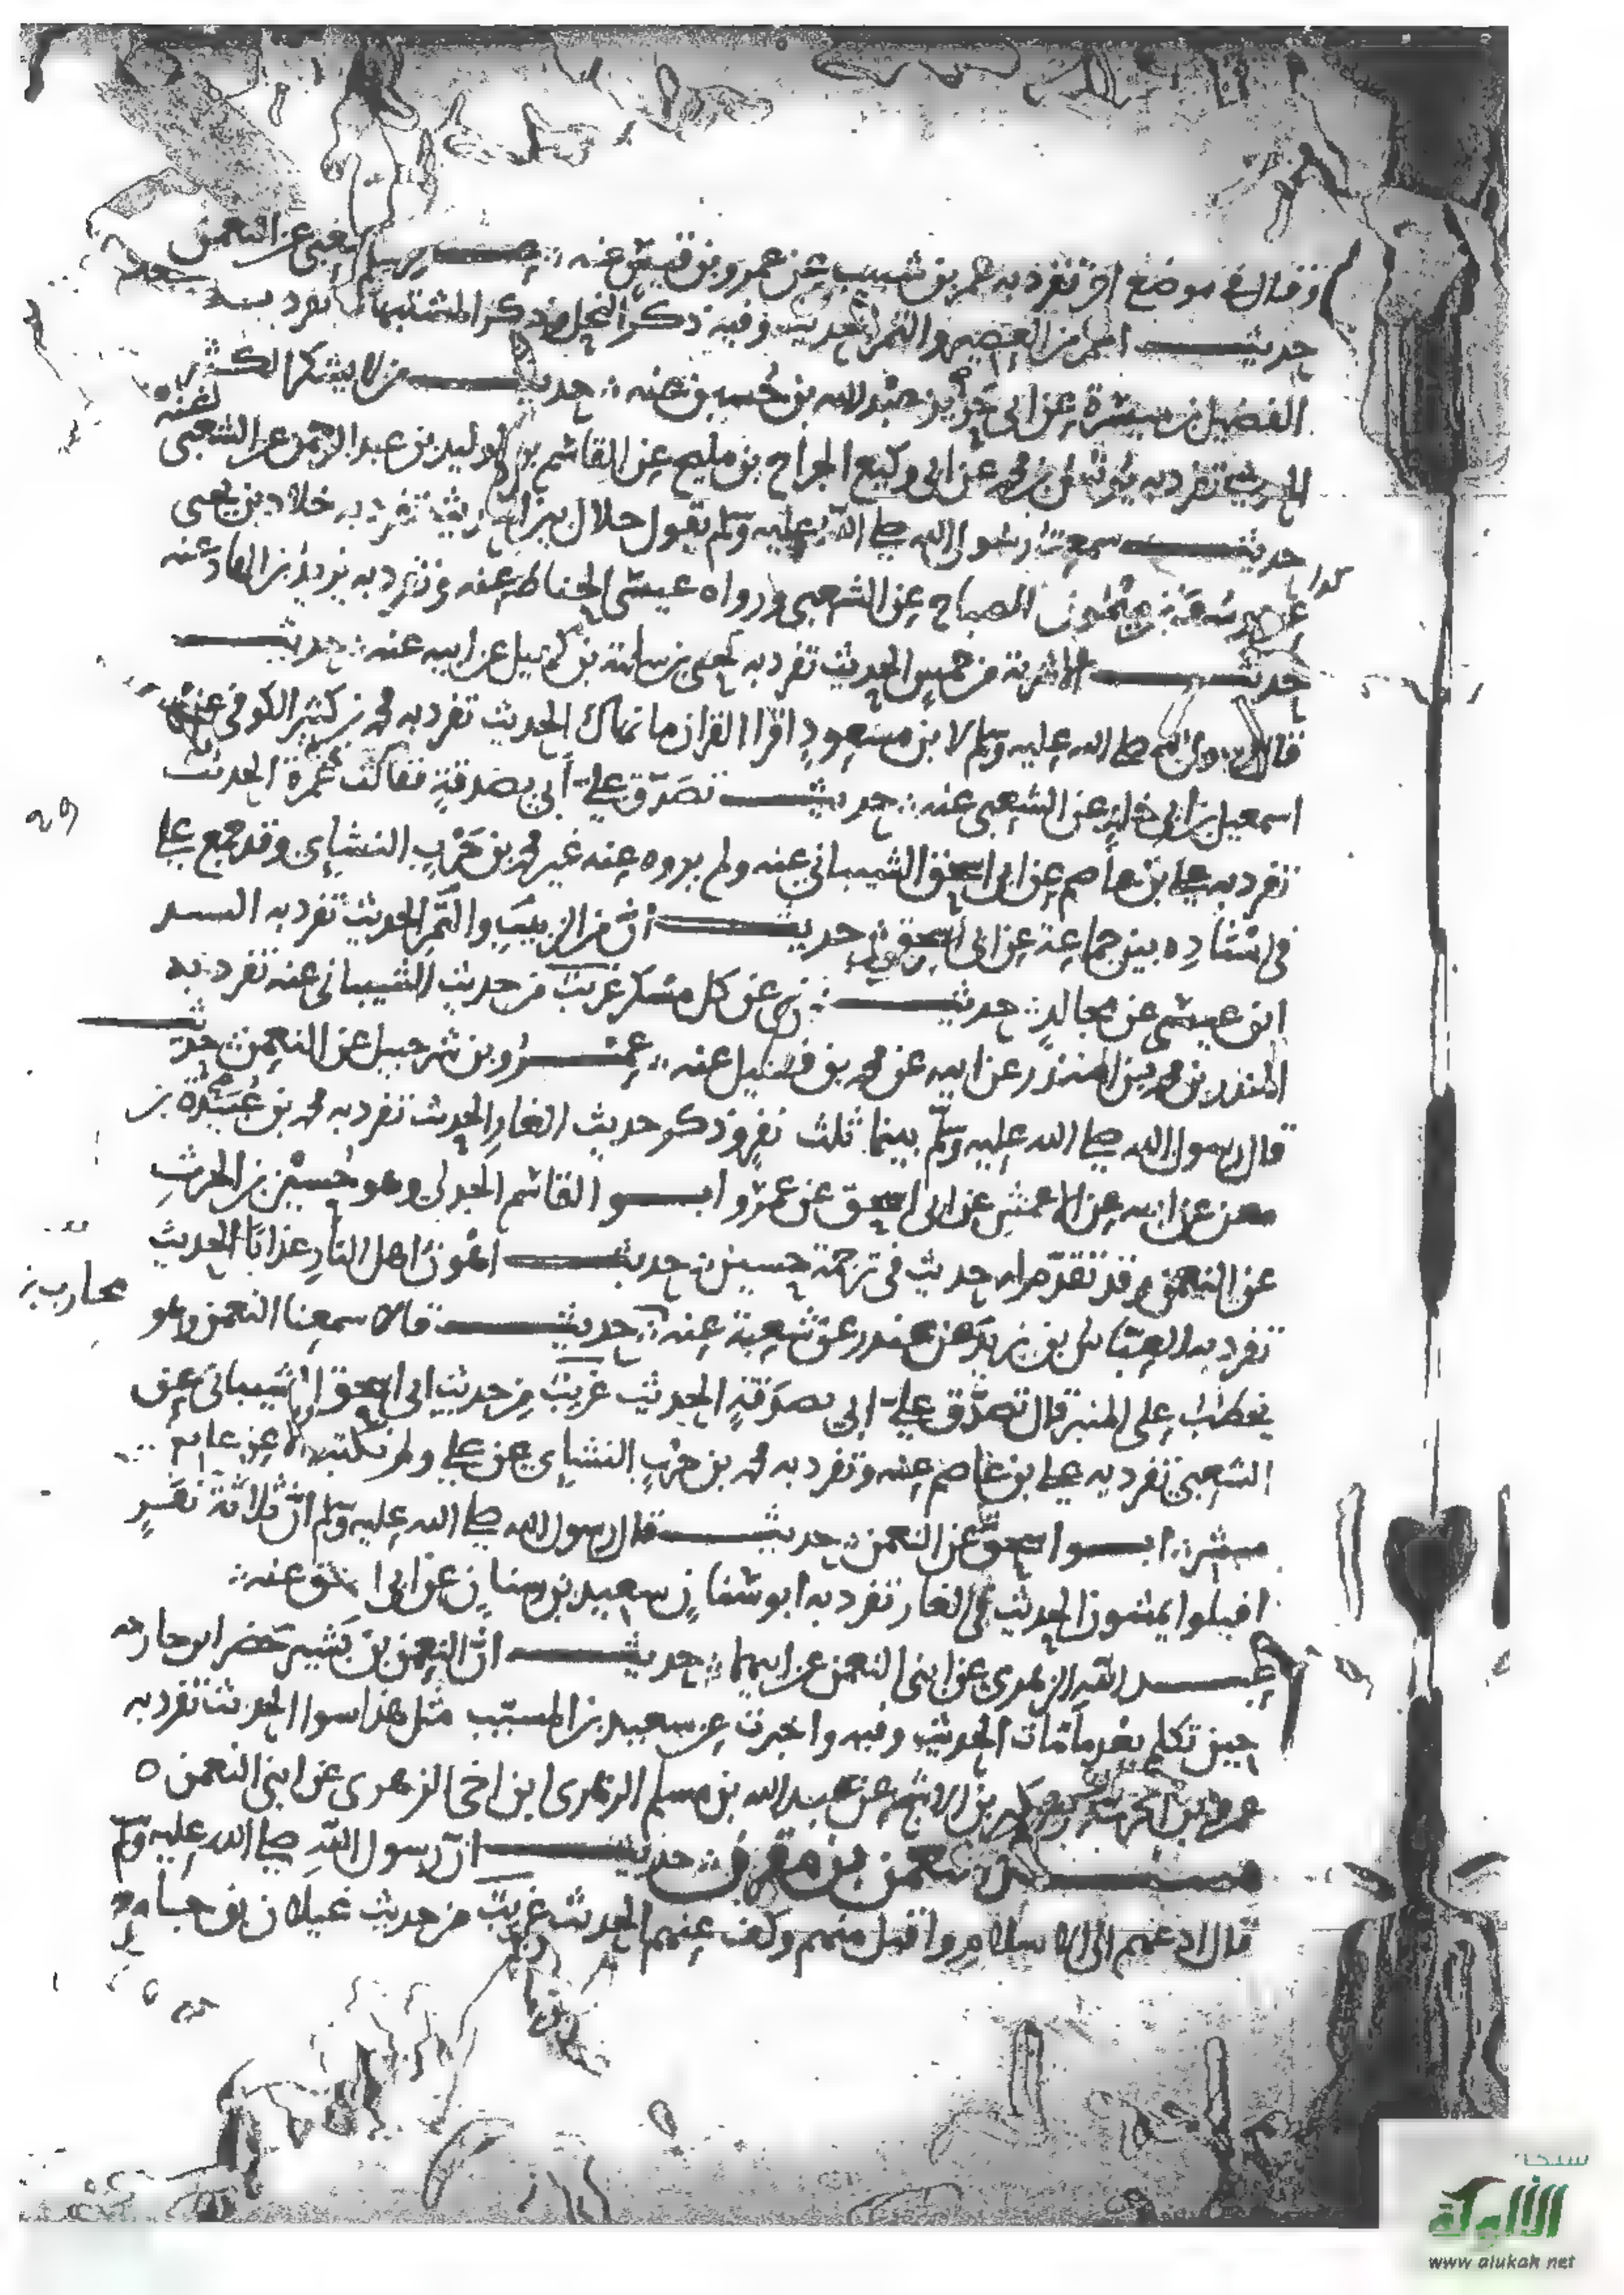 وقال في موضع اخر تفرد به عمر بن شبيب عن عمرو بن قيس عنه الشعبي عن النعمن
حديث الخمر من العصير والتمر الحديث وفيه ذكر النحل وذكر المشتبهات تفرد به
الفضيل بن ميسرة عن ابي حريز عبد الله بن حسين عنه حديث من لا يشكر الكثير
الحديث تفرد به يونس بن محمد عن ابي وكيع الجراح بن مليح عن القاسم بن الوليد بن عبد الرحمن عن الشعبي
حديث سمعت رسول الله صلى الله عليه وسلم يقول حلال بين الحديث تفرد به خلاد بن يحيى
الصباح عن الشعبي ورواه عيسى الحناط عنه وتفرد به يزيد بن عنه
حديث الاشربة من خمس الحديث تفرد به يحيى بن سلمة بن كهيل عن ابيه عنه حديث
قال رسول الله صلى الله عليه وسلم لابن مسعود اقرا القران ما نهاك الحديث تفرد به محمد بن كثير الكوفي عن
اسمعيل بن ابي خالد عن الشعبي عنه حديث تصدق علي ابي بصدقة فقالت عمرة الحديث
تفرد به علي بن عاصم عن ابي اسحق الشيباني عنه ولم يروه عنه غير محمد بن حرب النشاي وقد جمع علي
في اسناده بين جماعة عن ابي اسحق حديث ان من الزبيب والتمر الحديث تفرد به السر
ابن عيسى عن مجالد حديث نهى عن كل مسكر غريب من حديث الشيباني عنه تفرد به
المنذر بن محمد بن المنذر عن ابيه عن محمد بن فضيل عنه عمرو بن شرحبيل عن النعمن حديث
قال رسول الله صلى الله عليه وسلم بينما ثلث نفر وذكر حديث الغار الحديث تفرد به محمد بن عبيدة بن
معن عن ابيه عن الاعمش عن ابي اسحق عن عمرو ابو القاسم الجدلي وهو حسين بن الحرث
عن النعمن وقد تقدم له حديث في ترجمة حسين حديث اهون اهل النار عذابا الحديث
تفرد به العباس بن يزيد عن غندر عن شعبة عنه حديث قالا سمعنا النعمن وهو
محارب بن
يخطب على المنبر قال تصدق علي ابي بصدقة الحديث غريب من حديث ابي اسحق الشيباني عن
الشعبي تفرد به علي بن عاصم عنه وتفرد به محمد بن حرب النشاي عن علي ولم نكتبه الا عن علي بن
مبشر ابو اسحق عن النعمن حديث قال رسول الله صلى الله عليه وسلم ان ثلاثة نفر
اقبلوا يمشون الحديث في الغار تفرد به ابو سنان سعيد بن سنان عن ابي اسحق عنه
عبد الله الزهري عن ابني النعمن عن ابيهما حديث ان النعمن بن بشير حضر ابن حارثة
حين تكلم بعد ما مات الحديث وفيه واخبرت عن سعيد بن المسيب مثل هذا سوا الحديث تفرد به
بن الاشج عن عبد الله بن مسلم الزهري ابن اخي الزهري عن ابني النعمن
مسند النعمن بن مقرن حديث ان رسول الله صلى الله عليه وسلم
قال ادعهم الى الاسلام واقبل منهم وكف عنهم الحديث غريب من حديث غيلان بن جامع
الألوكة
www alukah net